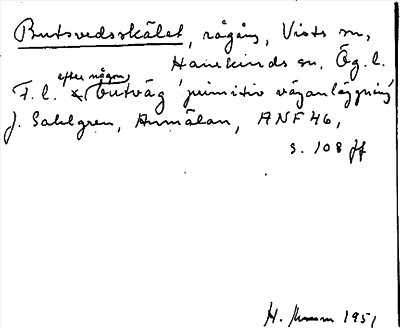 Butsvedsskälet, rågång, Vists sn,
Hanekinds sn, Ög. l.
efter någon
F. l. * butväg 'primitiv väganläggning'
J. Sahlgren, Anmälan, ANF 46,
s. 108 ff
H. 1951